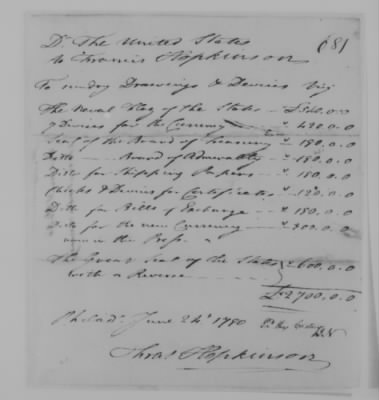 (81
Dr. The United States
to Francis Hopkinson
To sundry Drawings & Devices Viz
The Naval Flag of the States - £540.0.0
7 Devices for the Currency - " 420.0.0
Seal of the Board of Treasury " 180.0.0
Ditto Board of Admiralty " 180.0.0
Ditto for Shipping Papers " 180.0.0
Checks & Devices for Certificates " 120.0.0
Ditto for Bills of Exchange " 180.0.0
Ditto for the new Currency " 300.0.0
now in the Press "
The Great Seal of the States } " 600.0.0
with a Reverse
£2700.0.0
Philada. June 24th 1780
Fras Hopkinson